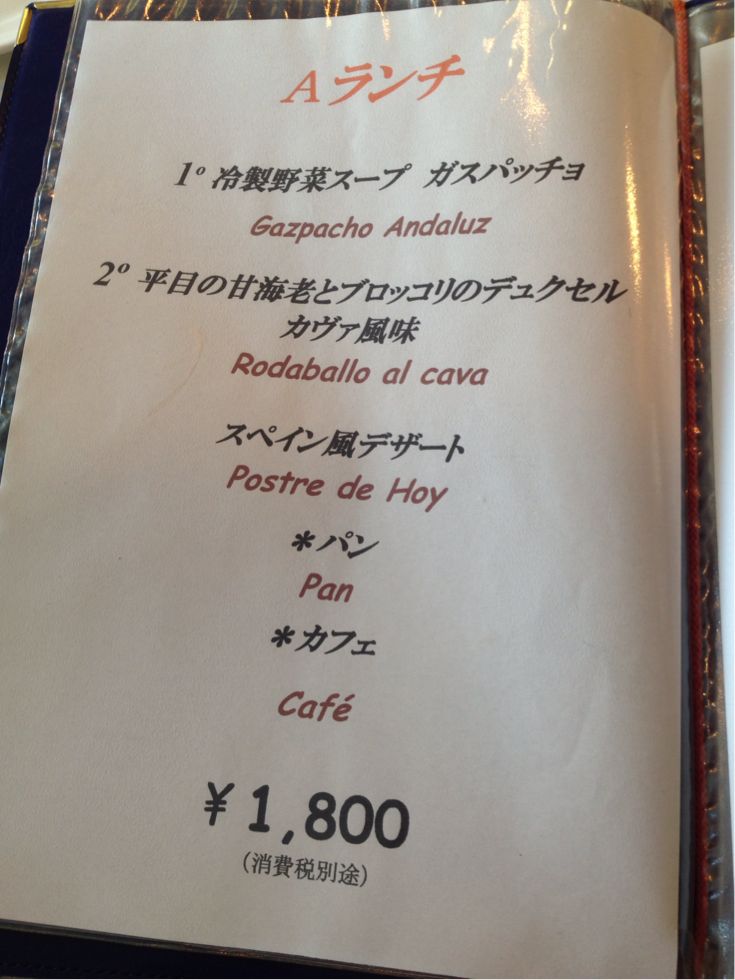 Aランチ
1º 冷製野菜スープ ガスパッチョ
Gazpacho Andaluz
2º 平目の甘海老とブロッコリのデュクセル
カヴァ風味
Rodaballo al cava
スペイン風デザート
Postre de Hoy
＊パン
Pan
＊カフェ
Café
￥1,800
（消費税別途）